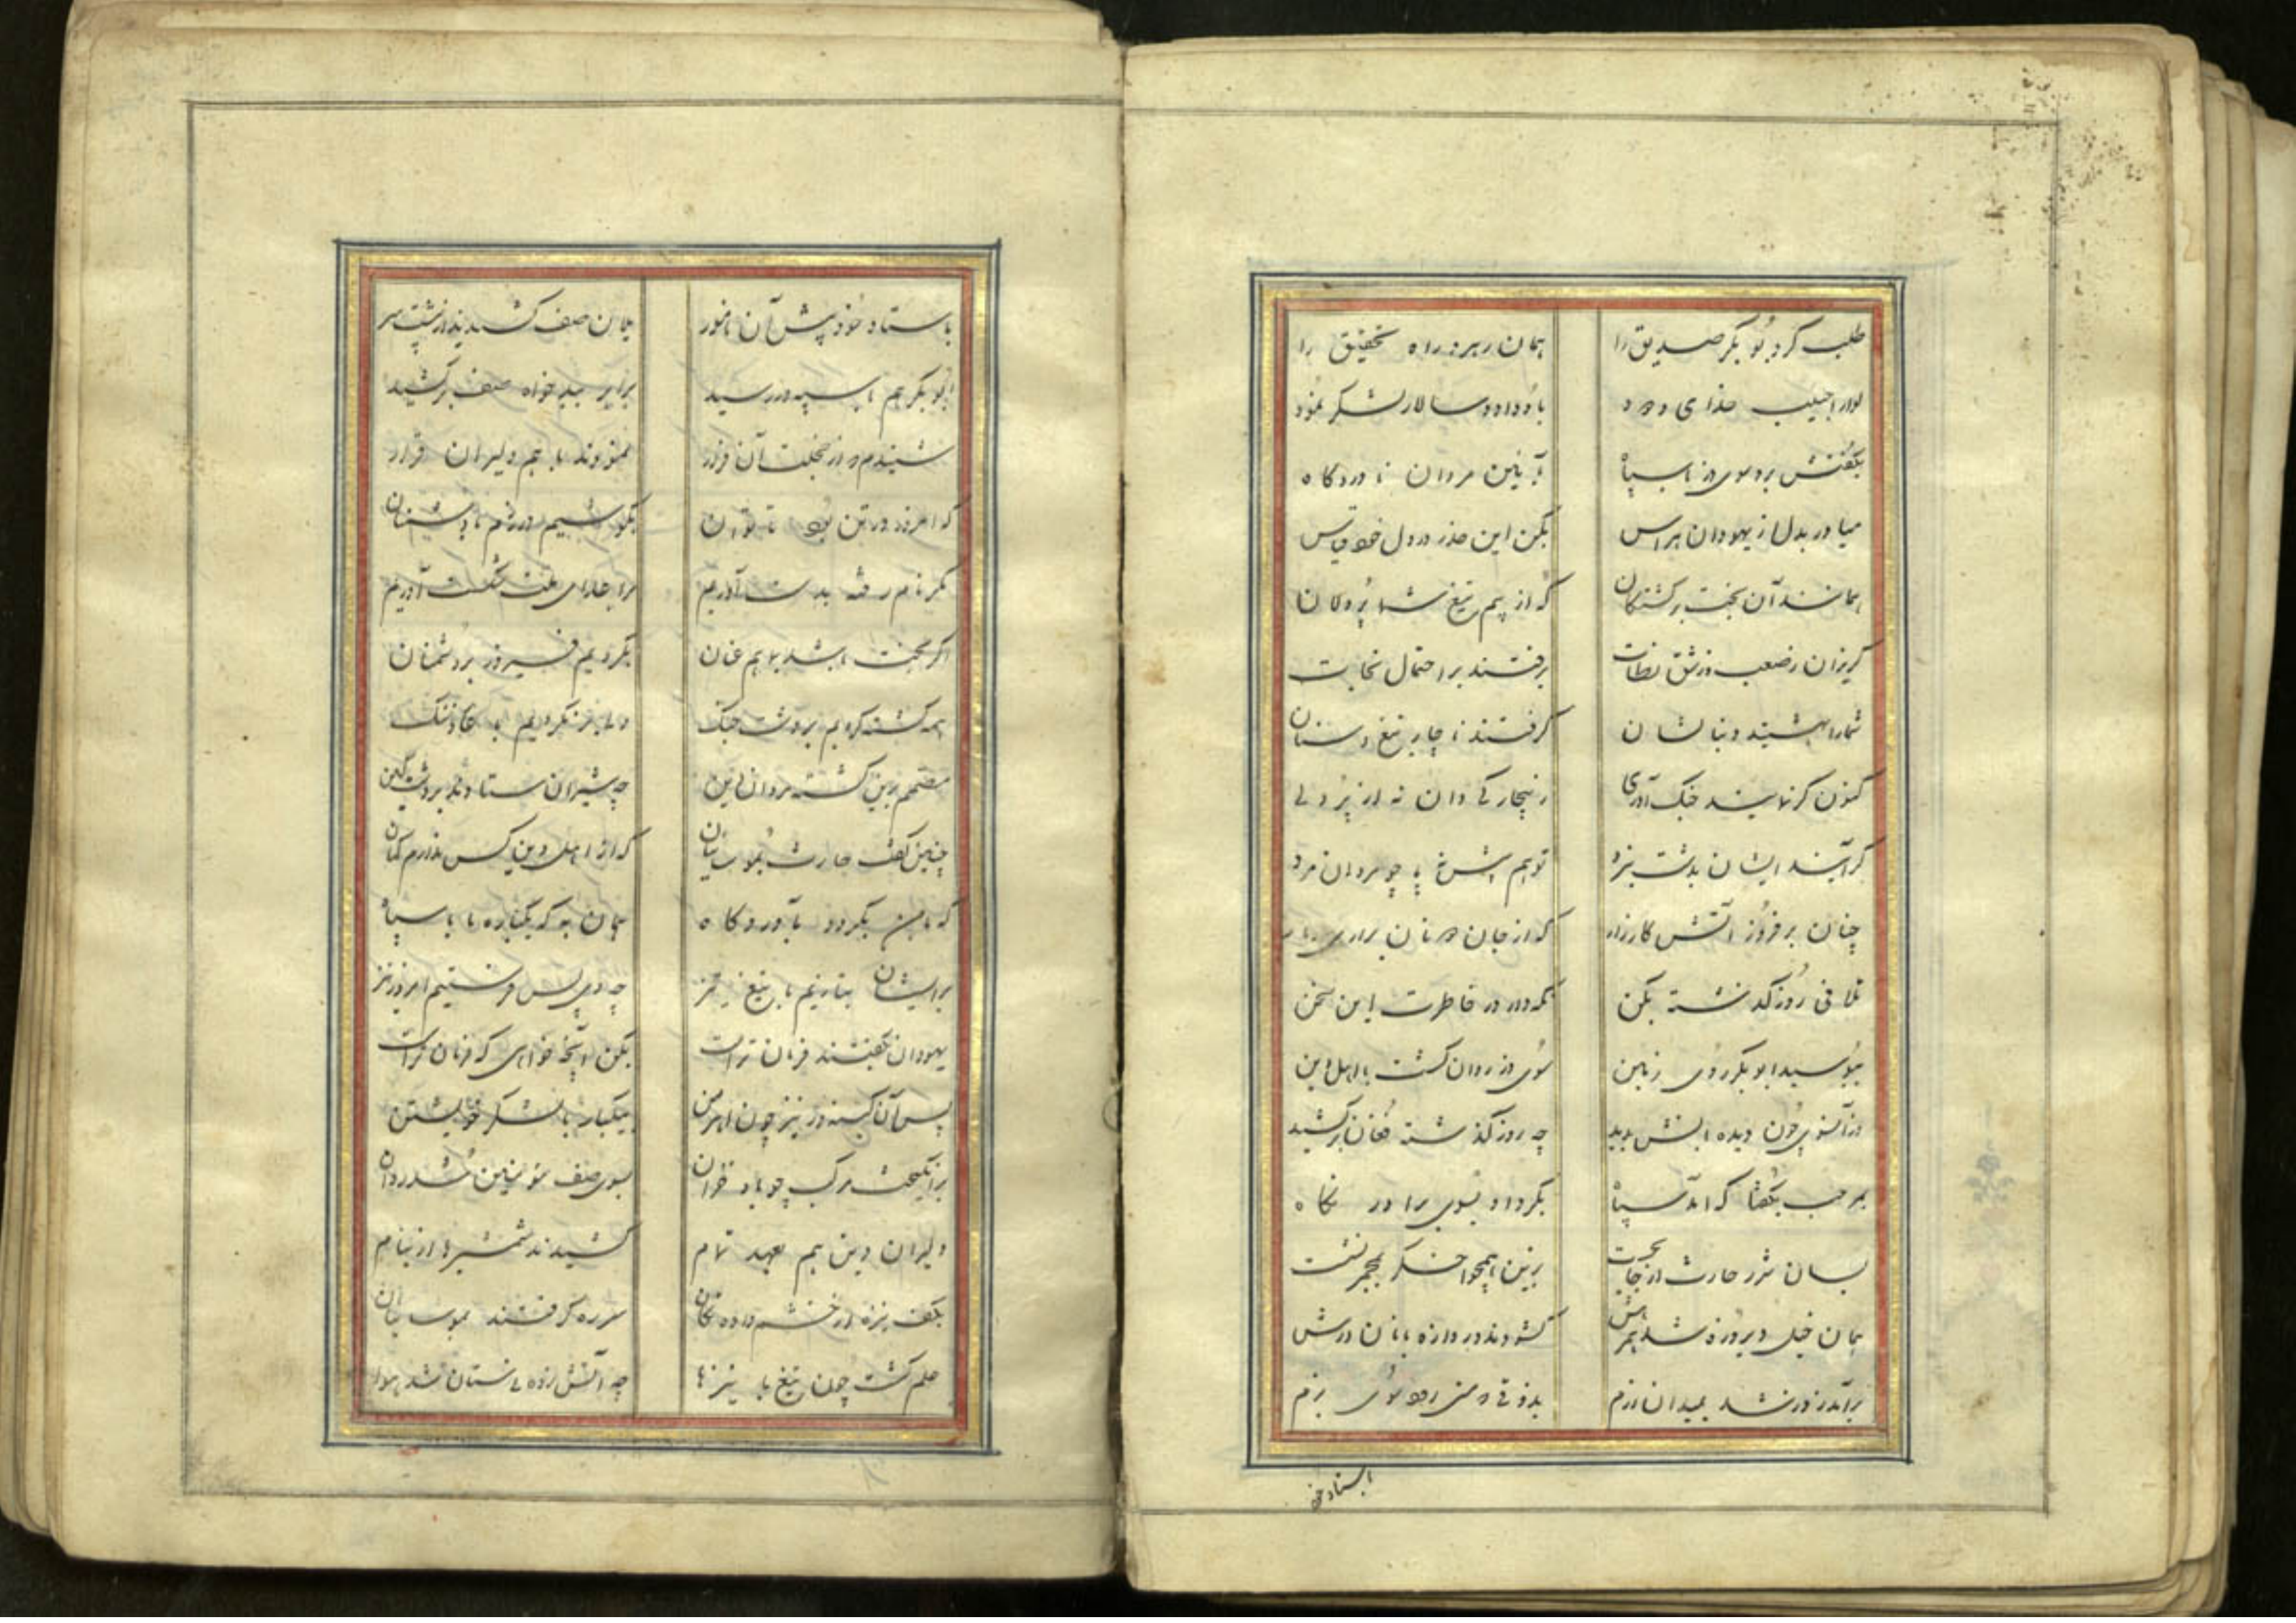 طلب کرد بو بکر صدیق را همان رهبر راه تحقیق را
لوا را حبیب خدای ودود باو داد و سالار لشکر نمود
بگفتش برو سوی دز با سپاه بآیین مردان ناوردگاه
میاور بدل از یهودان هراس بکن این حذر در دل خود قیاس
همانند آن بخت برگشتگان که از بیم تیغ شما
گریزان برفتند بر احتمال نجات
شما را دنبالشان گرفتند ناچار تیغ و سنان
کنون گر نمایند جنگ آوری ز بیچارگی دان نه از پر دلی
گر آیند ایشان بدشت نبرد تو هم پا چو مردان مرد
چنان بر فروز آتش کارزار که از جان
تلافی روز گذشته بکن نگه دار در خاطرت این سخن
ببوسید ابو بکر روی زمین سوی دز روان گشت با اهل دین
وز آنسوی چون دیده بانش بدید چه روز گذشته فغان بر کشید
بمرحب بگفتا که آمد سپاه بکرد او بسوی برادر نگاه
بسان شرر حارث از جا بجست بزین همچو اخگر بمجمر نشست
همان خیل دیروزه شد همرهش گشودند دروازه بانان درش
برآمد ز دز شد بمیدان رزم بذوقی سوی بزم
باستاد خود
باستاد خود پیش آن نامور یلان صف کشیدند از پشت سر
ابو بکر هم با سپه در رسید برابر ببدخواه صف بر کشید
شنیدم در از خجلت آن فرار نمودند با هم دلیران قرار
که امروز در تن بود تا توان بکوشیم در رزم با دشمنان
مگر نام رفته بدست آوریم مرا
اگر بخت باشد بما هم عنان بگردیم فیروز بر دشمنان
همه کشته گردیم بر دشت جنگ ولی بر نگردیم
مصمم برین گشته مردان دین چه شیران ستادند بر دشت کین
چنین گفت حارث که از اهل دین کس ندارم گمان
که با من بگردد بآوردگاه همان به که یکباره ما با سپاه
بر ایشان بتازیم با تیغ تیز چه دی پس فرستیم امروز نیز
یهودان بگفتند فرمان تراست بکن آنچه خواهی که فرمان تراست
پس آن کینه ور نیز چون اهرمن بیکبار با لشکر خویشتن
برانگیخت مرکب چو باد خزان بسوی صف مؤمنین شد روان
دلیران دین هم بعهد تمام کشیدند شمشیرها از نیام
بکف نیزه از خشم داده تکان سر ره گرفتند
علم گشت چون تیغ با نیزها چه آتش زده نیستان شد هوا